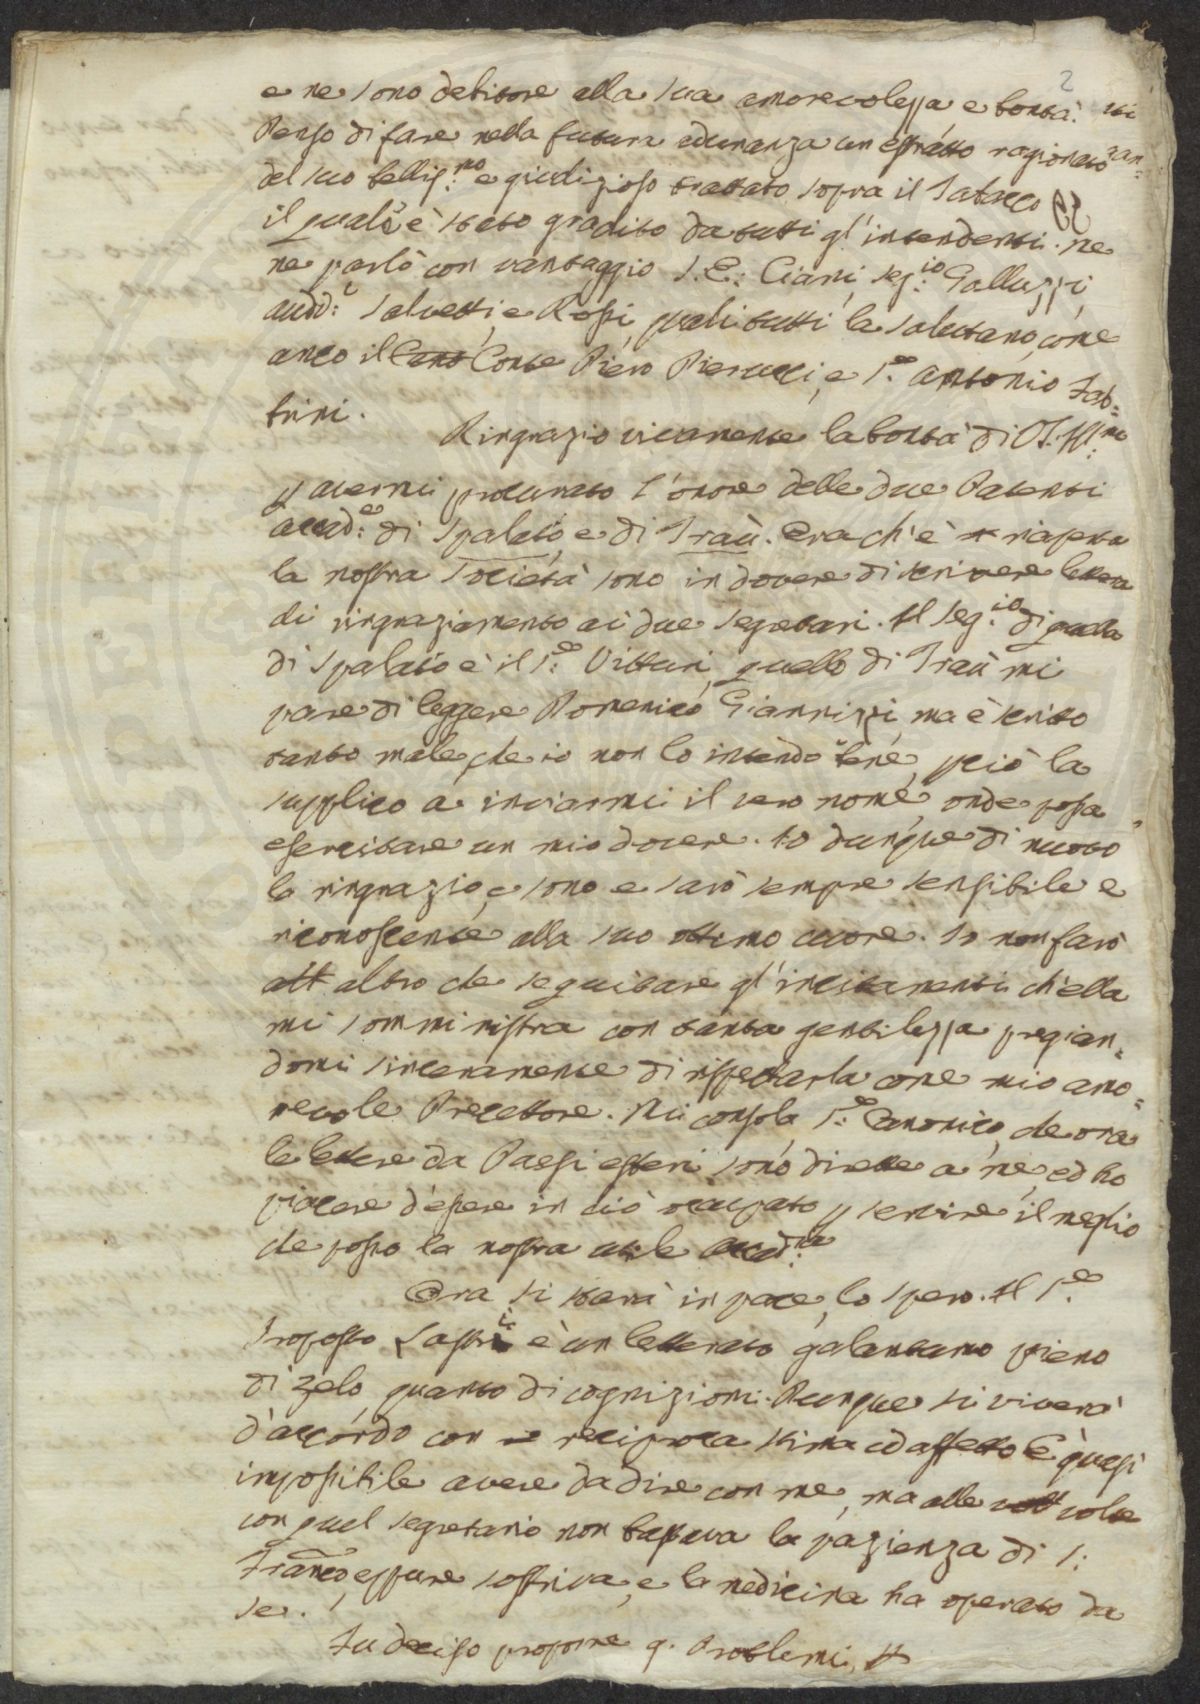 2
e ne sono debitore alla sua amorevolezza e bontà.
Penso di fare nella futura adunanza un estratto ragionato
del suo bellis:mo e giudizioso trattato sopra il Tabacco
il quale è stato gradito da tutti gl'intendenti. ne
ne parlò con vantaggio S. E: Ciani, seg:io Galluzzi,
audd: Salvetti, e Rossi, quali tutti la salutano, come
anco il Conte Piero Pierucci, e S:e Antonio Fab=
brini.
Ringrazio vivamente la bontà di VS. Ill:ma
p avermi procurato l'onore delle due Patenti
accad:e di Spalato, e di Traù. Ora ch'è riaperta
la nostra Società sono in dovere di scrivere lettera
di ringraziamento ai due segretari. Il seg:io di quella
di Spalato è il S:e Vitturi, quello di Traù mi
pare di leggere Domenico Giannizzi, ma è scritto
tanto male, che io non lo intendo bene, pciò la
supplico a inviarmi il vero nome, onde possa
esercitare un mio dovere. Io dunque di nuovo
la ringrazio, e sono e sarò sempre sensibile e
riconoscente alla suo ottimo cuore. Io non farò
att altro che seguitare gl'incitamenti ch'ella
mi somministra con tanta gentilezza pregian=
domi sinceramente di rispettarla come mio amo=
revole Precettore. Mi consola S:e Canonico, che ora
le lettere da Paesi esteri sono dirette a me, ed ho
piacere d'essere in ciò occupato p servire il meglio
che posso la nostra utile Accad:ia
Ora si starà in pace, lo spero. Il S:e
Proposto Lastri è un letterato galantuomo pieno
di zelo, quanto di cognizioni. Dunque si viverà
d'accordo con reciproca stima ed affetto. È quasi
impossibile avere da dire con me, ma alle volt volte
con quel segretario non bastava la pazienza di S:
Franco eppure soffriva, e la medicina ha operato da
se.
Fu deciso proporre q. Problemi,